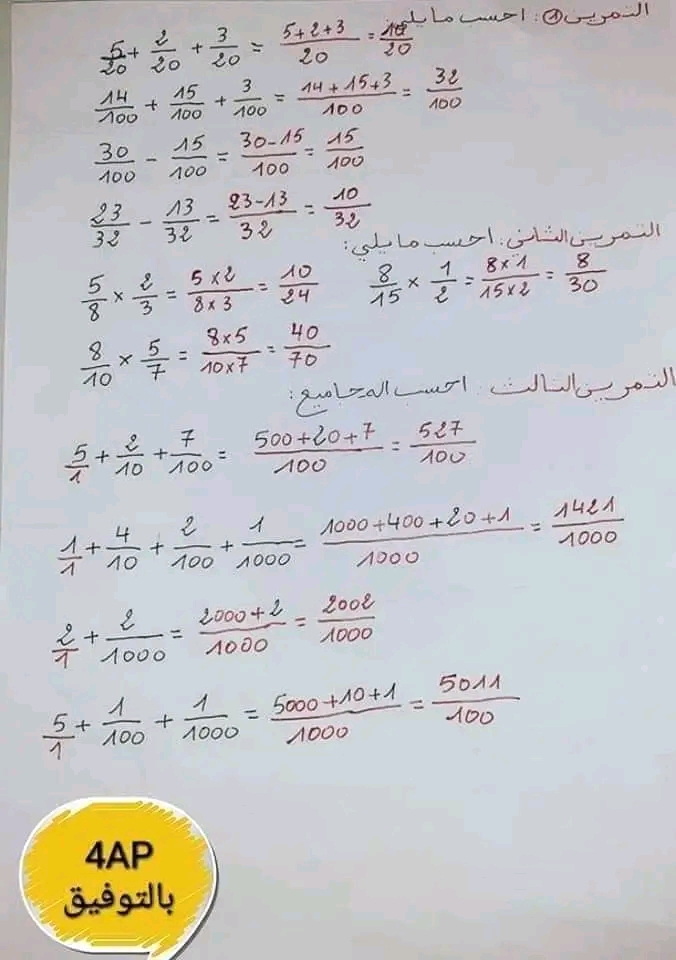 التمرين ①: احسب ما يلي:
5/20 + 2/20 + 3/20 = (5+2+3)/20 = 10/20
14/100 + 15/100 + 3/100 = (14+15+3)/100 = 32/100
30/100 - 15/100 = (30-15)/100 = 15/100
23/32 - 13/32 = (23-13)/32 = 10/32
التمرين الثاني: احسب ما يلي:
5/8 × 2/3 = (5×2)/(8×3) = 10/24 8/15 × 1/2 = (8×1)/(15×2) = 8/30
8/10 × 5/7 = (8×5)/(10×7) = 40/70
التمرين الثالث: احسب المجاميع:
5/1 + 2/10 + 7/100 = (500+20+7)/100 = 527/100
1/1 + 4/10 + 2/100 + 1/1000 = (1000+400+20+1)/1000 = 1421/1000
2/1 + 2/1000 = (2000+2)/1000 = 2002/1000
5/1 + 1/100 + 1/1000 = (5000+10+1)/1000 = 5011/100
4AP
بالتوفيق